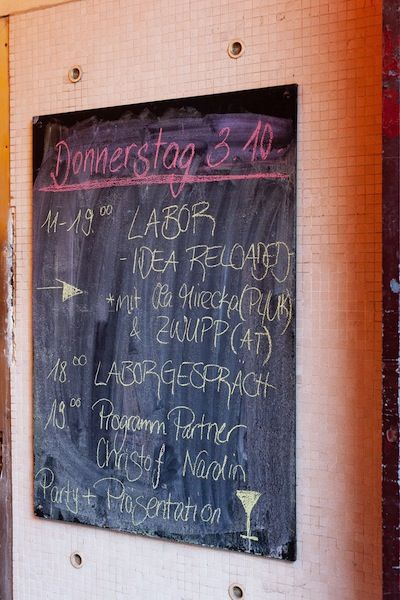 Donnerstag 3.10.
11-19.00 LABOR
- IDEA RELOADED
*mit Ola Hirecka (PL/UK)
& ZWUPP (AT)
18.00 LABORGESPRÄCH
19.00 Programm Partner
Christof Nardin
Party + Präsentation